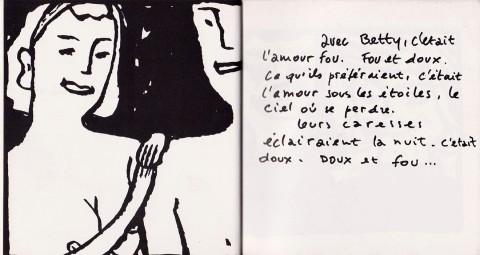 avec Betty, c'était
l'amour fou. Fou et doux.
Ce qu'ils préféraient, c'était
l'amour sous les étoiles, le
ciel où se perdre.
Leurs caresses
éclairaient la nuit. C'était
doux. Doux et fou...